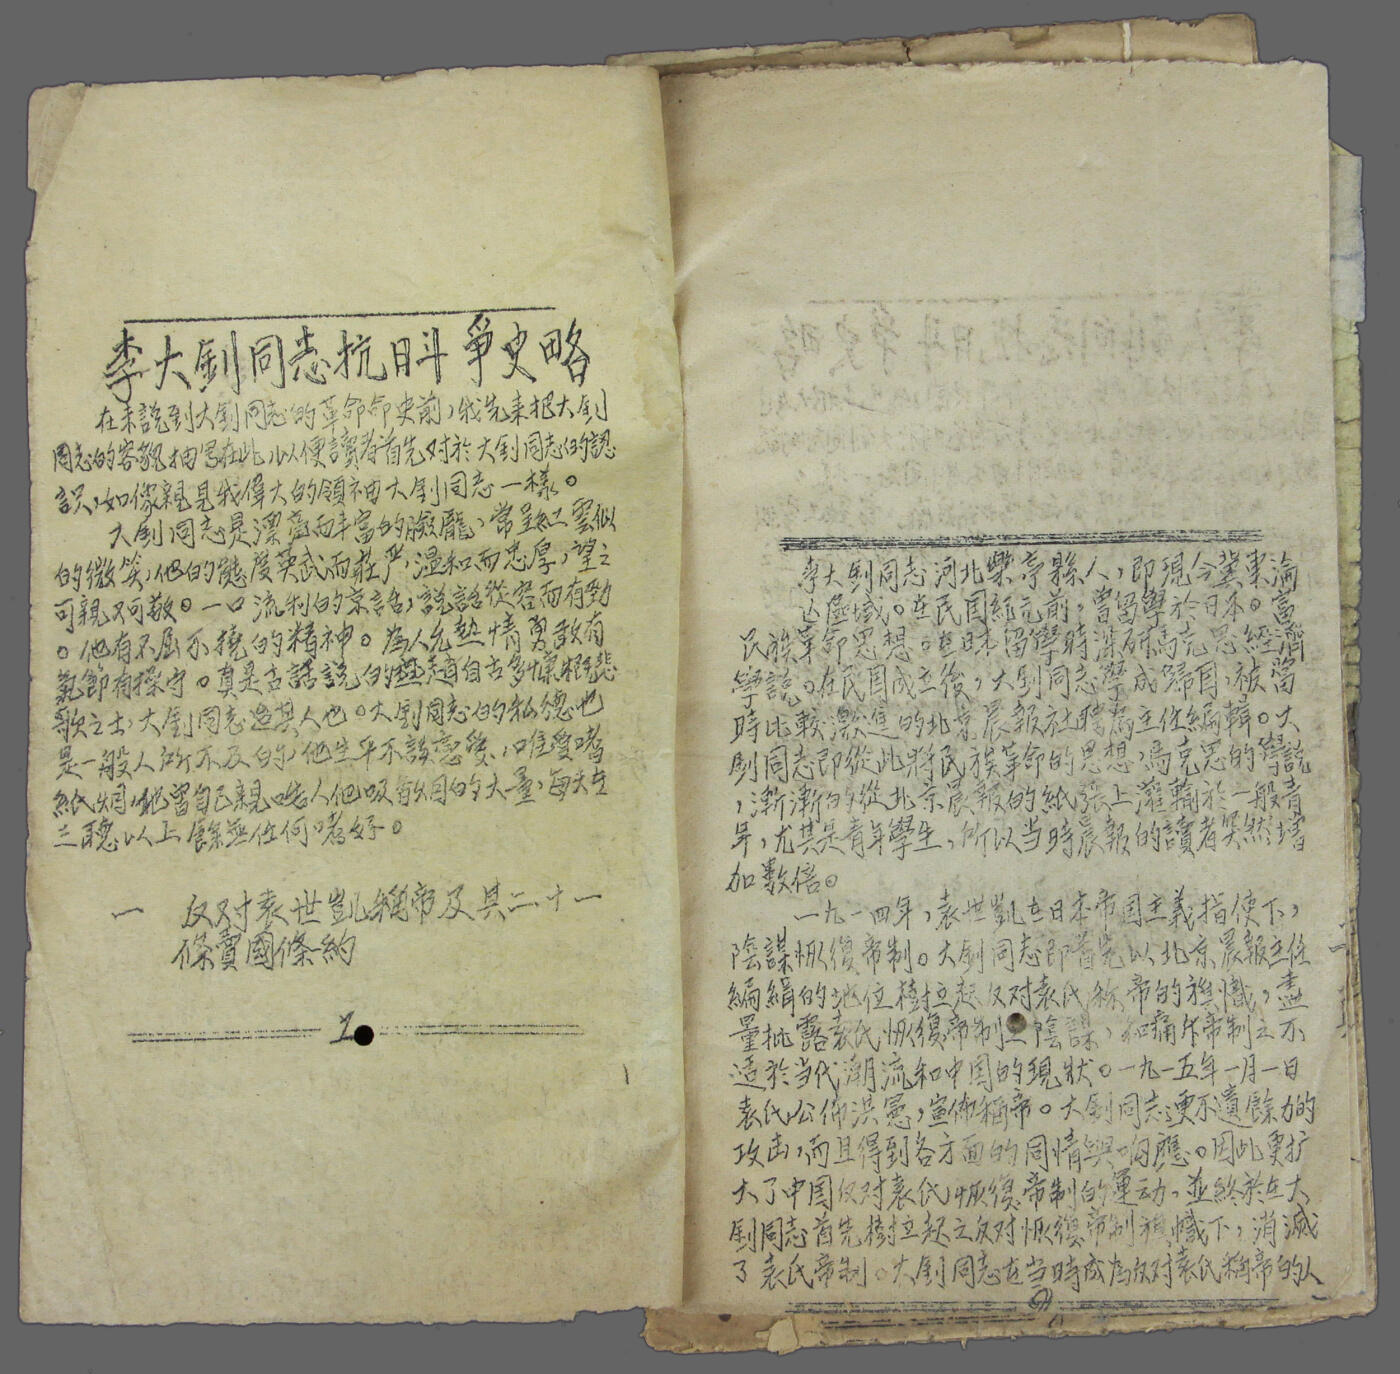 李大釗同志抗日斗爭史略
在未說到大釗同志的革命命史前，我先来把大釗
同志的容貌抽写在此，以便讀者首先对於大釗同志的認
識，如像親見我偉大的領袖大釗同志一樣。
大釗同志是漂亮而丰富的臉龐，常呈紅雲似
的微笑，他的態度英武而莊严，溫和而忠厚，望之
可親又可敬。一口流利的京話，說話從容而有勁
。他有不屈不撓的精神。為人尤熱情勇敢有
氣節有操守。真是古話説的燕趙自古多慷慨悲
歌之士，大釗同志造其人也。大釗同志的私德也
是一般人所不及的，他生平不談恋愛，唯愛嗜
紙烟，曾自己親口告人他吸飲烟的大量，每天在
三聽以上餘無任何嗜好。
一 反对袁世凱稱帝及其二十一
條賣國條約
1
李大釗同志河北樂亭縣人，即現今冀東淪
亡區域。在民国紀元前，曾留學於日本。富
民族革命思想。在日本留學時深研馬克思經濟
學說。在民国成立後，大釗同志學成歸国，被當
時比較激進的北京晨報社聘為主任編輯。大
釗同志即從此將民族革命的思想，馬克思的學說
，漸漸的從北京晨報的紙張上灌輸於一般青
年，尤其是青年學生，所以当時晨報的讀者突然增
加數倍。
一九一四年，袁世凱在日本帝国主義指使下，
陰謀恢復帝制。大釗同志即首先以北京晨報主任
編緝的地位樹立起反对袁氏称帝的旗幟，盡
量批露袁氏恢復帝制之陰謀，和痛斥帝制之不
适於当代潮流和中国的現狀。一九一五年一月一日
袁氏公佈洪憲，宣佈稱帝。大釗同志更不遺餘力的
攻击，而且得到各方面的同情與响應。因此更扩
大了中国反对袁氏恢復帝制的運动，並終於在大
釗同志首先樹立起之反对恢復帝制旗幟下，消滅
了袁氏帝制。大釗同志在当時成为反对袁氏稱帝的人